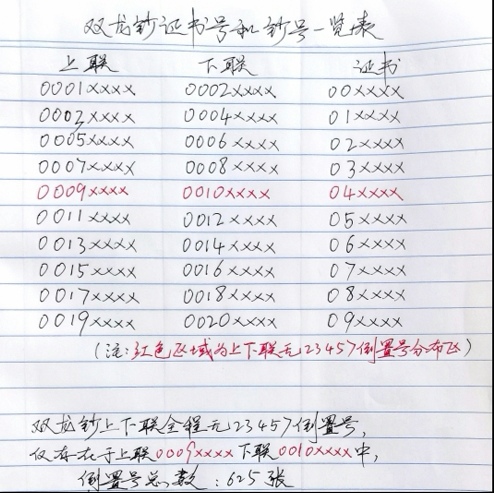 双龙钞证书号和钞号一览表
上联 下联 证书
0001xxxx 0002xxxx 00xxxx
0003xxxx 0004xxxx 01xxxx
0005xxxx 0006xxxx 02xxxx
0007xxxx 0008xxxx 03xxxx
0009xxxx 0010xxxx 04xxxx
0011xxxx 0012xxxx 05xxxx
0013xxxx 0014xxxx 06xxxx
0015xxxx 0016xxxx 07xxxx
0017xxxx 0018xxxx 08xxxx
0019xxxx 0020xxxx 09xxxx
(注:红色区域为上下联无23457倒置号分布区)
双龙钞上下联全程无23457倒置号,
仅存在于上联0009xxxx下联0010xxxx中,
倒置号总数:625张